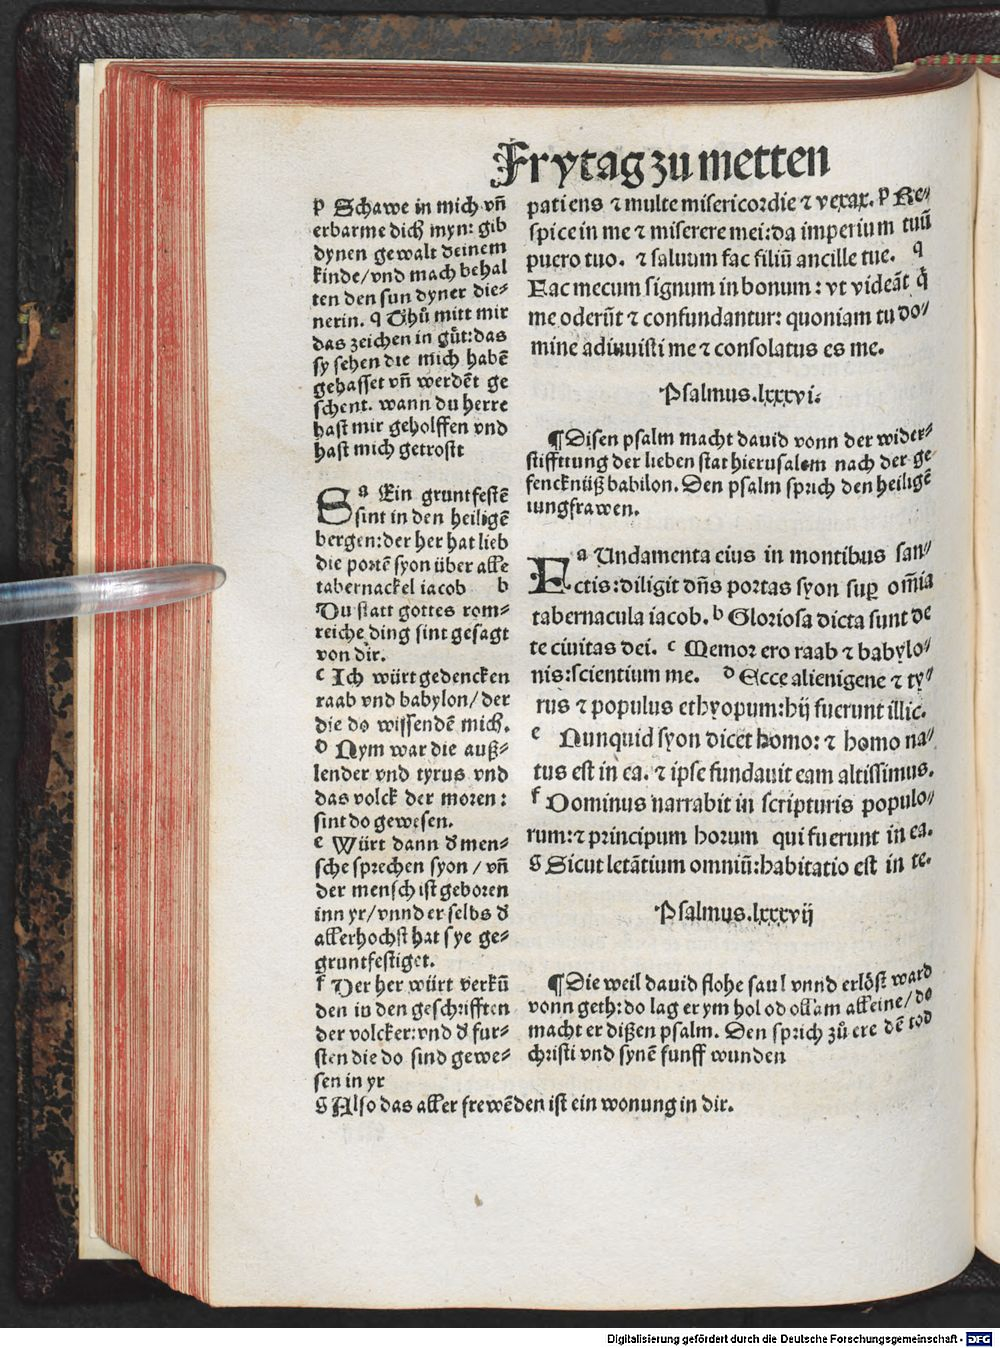 Frytag zu metten
p Schawe in mich vn̄
erbarme dich myn: gib
dynen gewalt deinem
kinde/vnd mach behal
ten den sun dyner die⸗
nerin. q Thů mitt mir
das zeichen in gůt:das
sy sehen die mich habē
gehasset vn̄ werdēt ge
schent. wann du herre
hast mir geholffen vnd
hast mich getrostt
S a Ein gruntfestē
sint in den heiligē
bergen:der her hat lieb
die portē syon über alle
tabernackel iacob b
Du statt gottes rom⸗
reiche ding sint gesagt
von dir.
c Ich würt gedencken
raab vnd babylon/der
die do wissendē mich.
d Nym war die auß⸗
lender vnd tyrus vnd
das volck der moren:
sint do gewesen.
e Würt dann d̄ men⸗
sche sprechen syon/vn̄
der mensch ist geboren
inn yr/vnnd er selbs d̄
allerhochst hat sye ge⸗
gruntfestiget.
f Der her würt verkū
den in den geschrifften
der volcker:vnd d̄ fur⸗
sten die do sind gewe⸗
sen in yr
g Also das aller frewēden ist ein wonung in dir.
patiens ⁊ multe misericordie ⁊ verax. p Re⸗
spice in me ⁊ miserere mei:da imperium tuū
puero tuo. ⁊ saluum fac filiū ancille tue. q
Fac mecum signum in bonum: vt videāt q̄
me oderūt ⁊ confundantur: quoniam tu do⸗
mine adiuuisti me ⁊ consolatus es me.
Psalmus.lxxxvi.
¶Disen psalm macht dauid vonn der wider⸗
stifftung der lieben stat hierusalem nach der ge
fencknüß babilon. Den psalm sprich den heiligē
iungfrawen.
F a Undamenta eius in montibus san⸗
ctis:diligit dn̄s portas syon suꝑ om̄ia
tabernacula iacob. b Gloriosa dicta sunt de
te ciuitas dei. c Memor ero raab ⁊ babylo⸗
nis:scientium me. d Ecce alienigene ⁊ ty⸗
rus ⁊ populus ethyopum:hij fuerunt illic.
e Nunquid syon dicet homo: ⁊ homo na⸗
tus est in ea. ⁊ ipse fundauit eam altissimus.
f Dominus narrabit in scripturis populo⸗
rum:⁊ principum horum qui fuerunt in ea.
g Sicut letātium omniū:habitatio est in te.
Psalmus.lxxxvij
¶Die weil dauid flohe saul vnnd erlöst ward
vonn geth:do lag er ym hol odollam alleine/do
macht er dißen psalm. Den sprich zů ere dē tod
christi vnd synē funff wunden
Digitalisierung gefördert durch die Deutsche Forschungsgemeinschaft - DFG